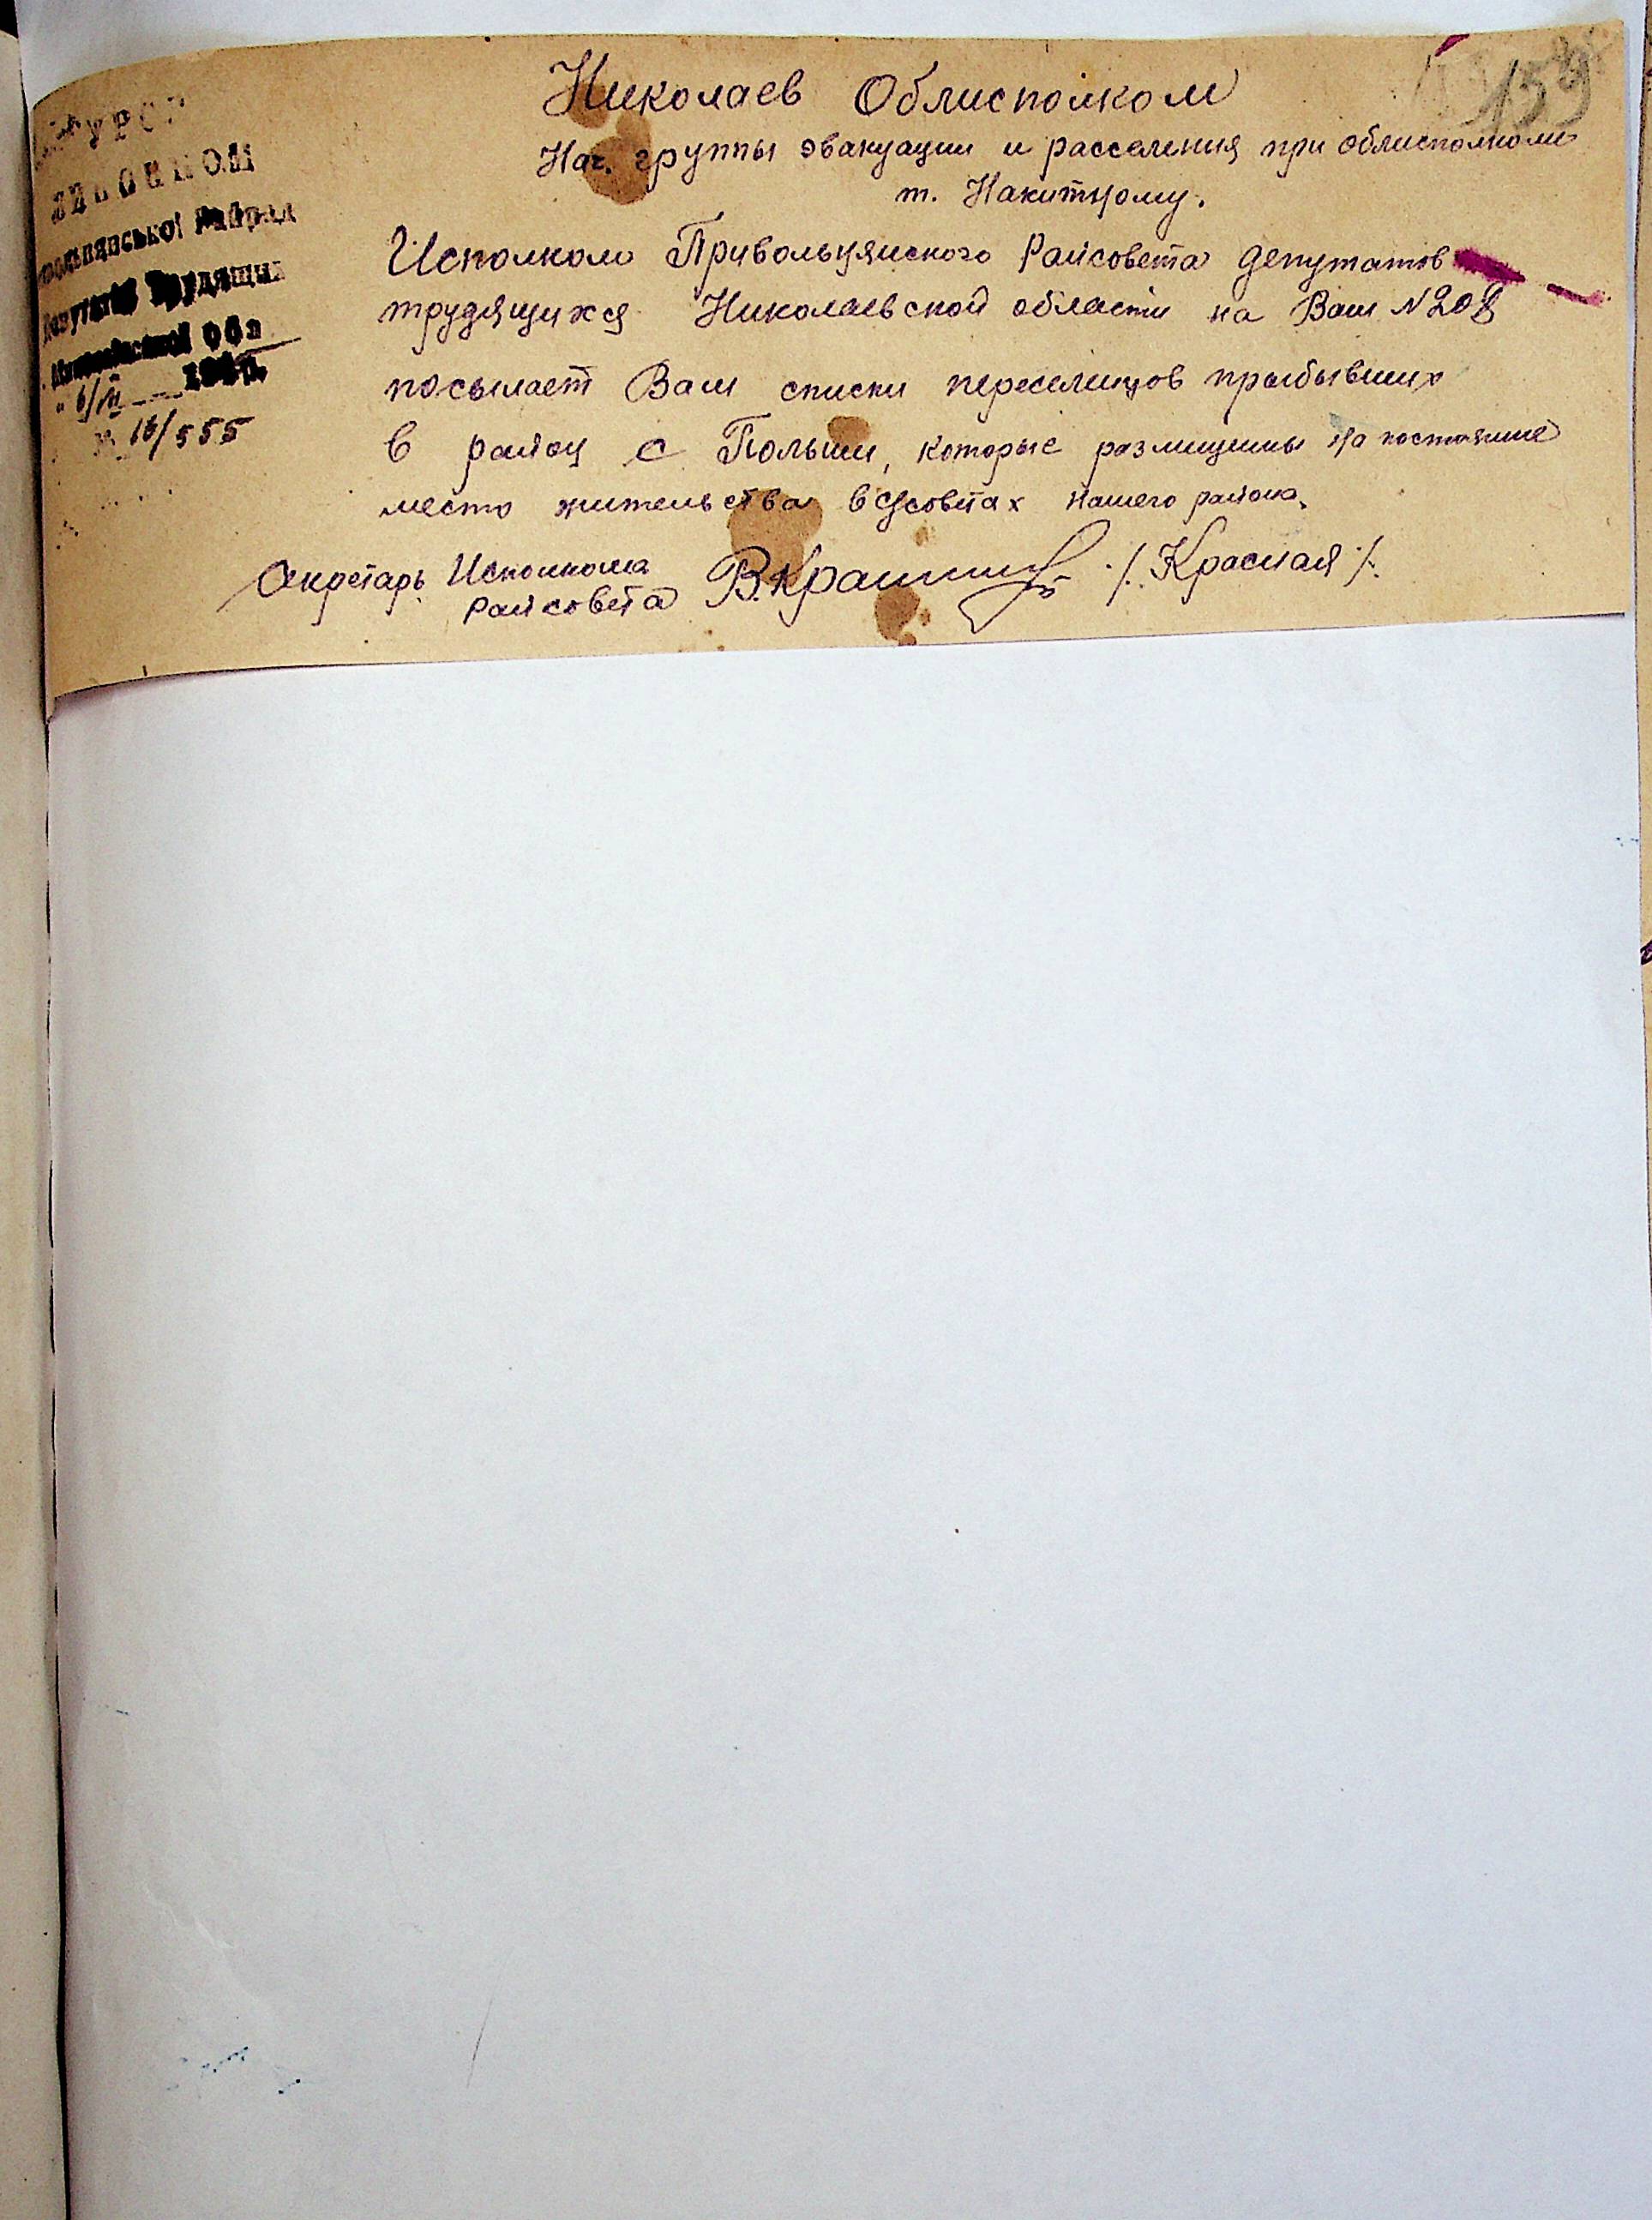 159
УРСР
ВИКОНКОМ
Райради
Депутатів Трудящих
Миколаївської Обл
"6/VI 194 р.
№ 16/555
Николаев Облисполком
Нач. группы эвакуации и расселения при облисполкоме
т.
Исполком Привольнянского Райсовета депутатов
трудящихся Николаевской области на Ваш №208
посылает Вам списки переселенцов прыбывших
в район с Польши, которые размещены на постояние
место жительства в с/советах нашего района.
Секретарь Исполкома
Райсовета /. Красная /.